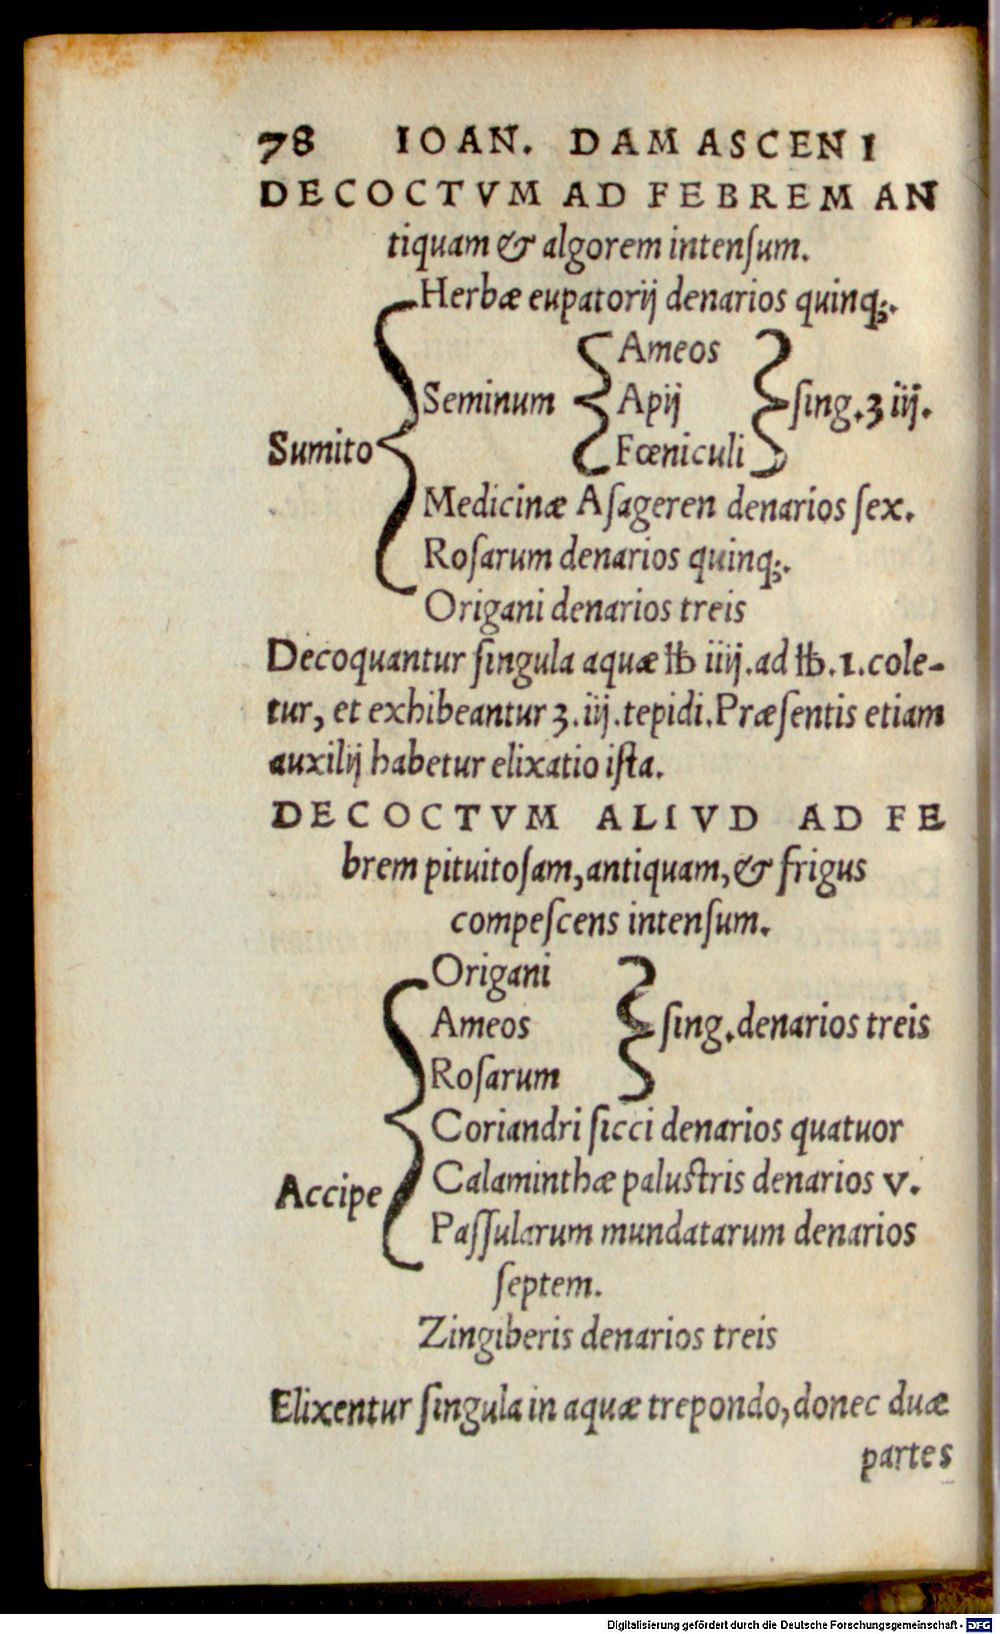 78 IOAN. DAMASCENI
DECOCTVM AD FEBREM AN
tiquam & algorem intenſum.
Herbæ eupatorij denarios quinq;.
Ameos
Seminum Apij ſing.ʒ iij.
Sumito Fœniculi
Medicinæ Aſageren denarios ſex.
Roſarum denarios quinq;.
Origani denarios treis
Decoquantur ſingula aquæ ℔ iiij.ad ℔.1.cole-
tur, et exhibeantur ʒ.iij.tepidi.Præſentis etiam
auxilij habetur elixatio iſta.
DECOCTVM ALIVD AD FE
brem pituitoſam,antiquam,& frigus
compeſcens intenſum.
Origani
Ameos ſing.denarios treis
Roſarum
Coriandri ſicci denarios quatuor
Accipe Calaminthæ paluſtris denarios v.
Paſſularum mundatarum denarios
ſeptem.
Zingiberis denarios treis
Elixentur ſingula in aquæ trepondo,donec duæ
partes
Digitalisierung gefördert durch die Deutsche Forschungsgemeinschaft - DFG